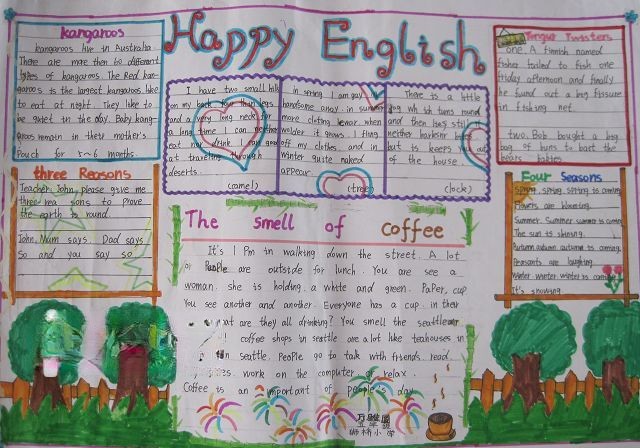 Happy English
kangaroos
kangaroos live in Australia.
There are more then 60 different
types of kangaroos. The Red kan-
garoos is the largest kangaroos like
to eat at night. They like to
be quiet in the day. Baby kang-
aroos remain in their mother's
Pouch for 5~6 months.
three Reasons
Teacher: John, please give me
three rea sons to prove
the earth is round.
John: Mum says. Dad says
So and you say so
I have two small hills
on my back four than legs
and a very long neck for
a long time I can neither
eat nor drink. I am good
at traveling through
deserts.
(camel)
In spring I am gay
handsome array. in summer
more cloting I wear when
colder it grows. I fling
off my clothes. and in
winter quite naked
appear.
(tree)
There is a little
dog which turns round
and then lies still
neither barks nor bites
but is keeps you out
of the house.
(lock)
Tongue Twisters
one. A finnish named
fisher failed to fish one
friday afternoon and finally
he fund out a big fissure
in fishing net.
two. Bob bought a big
bag of buns to bast the
bears babies.
Four Seasons
Spring, spring, spring is coming.
Flowers are blooming.
Summer. Summer summer is coming
The sun is shining.
Autumn autumn autumn is coming.
Peasants are laughing.
Winter winter winter is coming
It's snowing
The smell of coffee
It's 1 Pm in walking down the street. A lot
of People are outside for lunch. You are see a
woman. she is holding a white and green. Paper. cup
You see another and another. Everyone has a cup in their
what are they all drinking? You smell the seattle air
coffee shops in seattle are a lot like teahouses in
in seattle. People go to talk with friends. read
work on the computer or relax.
Coffee is an important of people's day
小学